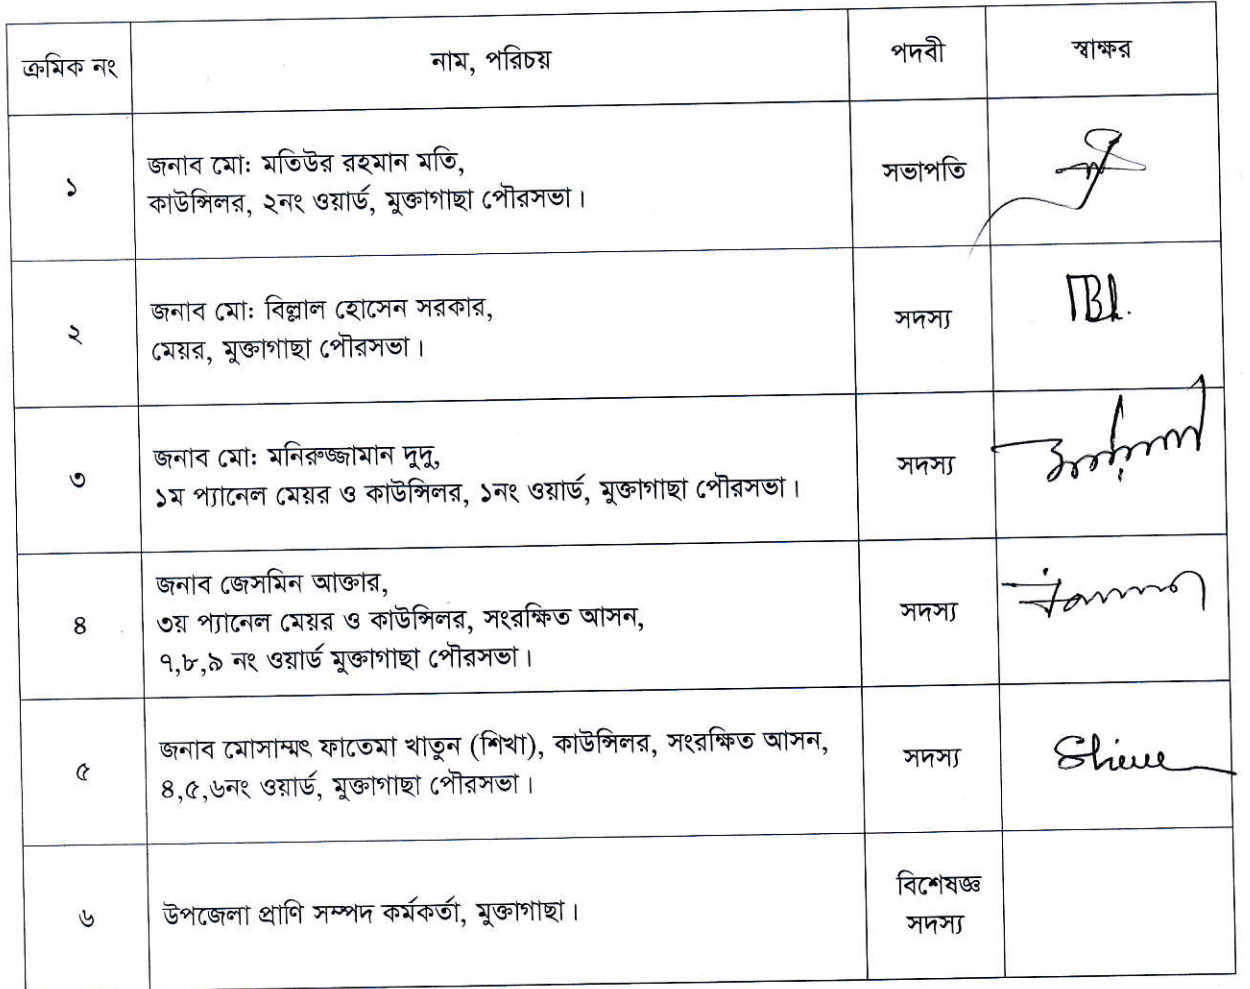 ক্রমিক নং নাম, পরিচয় পদবী স্বাক্ষর
১ জনাব মো: মতিউর রহমান মতি,
কাউন্সিলর, ২নং ওয়ার্ড, মুক্তাগাছা পৌরসভা। সভাপতি
২ জনাব মো: বিল্লাল হোসেন সরকার,
মেয়র, মুক্তাগাছা পৌরসভা। সদস্য
৩ জনাব মো: মনিরুজ্জামান দুদু,
১ম প্যানেল মেয়র ও কাউন্সিলর, ১নং ওয়ার্ড, মুক্তাগাছা পৌরসভা। সদস্য
৪ জনাব জেসমিন আক্তার,
৩য় প্যানেল মেয়র ও কাউন্সিলর, সংরক্ষিত আসন,
৭,৮,৯ নং ওয়ার্ড মুক্তাগাছা পৌরসভা। সদস্য
৫ জনাব মোসাম্মৎ ফাতেমা খাতুন (শিখা), কাউন্সিলর, সংরক্ষিত আসন,
৪,৫,৬নং ওয়ার্ড, মুক্তাগাছা পৌরসভা। সদস্য
৬ উপজেলা প্রাণি সম্পদ কর্মকর্তা, মুক্তাগাছা। বিশেষজ্ঞ
সদস্য